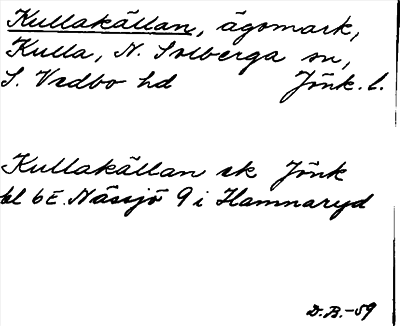 Kullakällan, ägomark,
Kulla, N. Solberga sn,
S. Vedbo hd Jönk. l.
Kullakällan ek Jönk
bl 6E. Nässjö 9 i Hamnaryd
D.A.-59